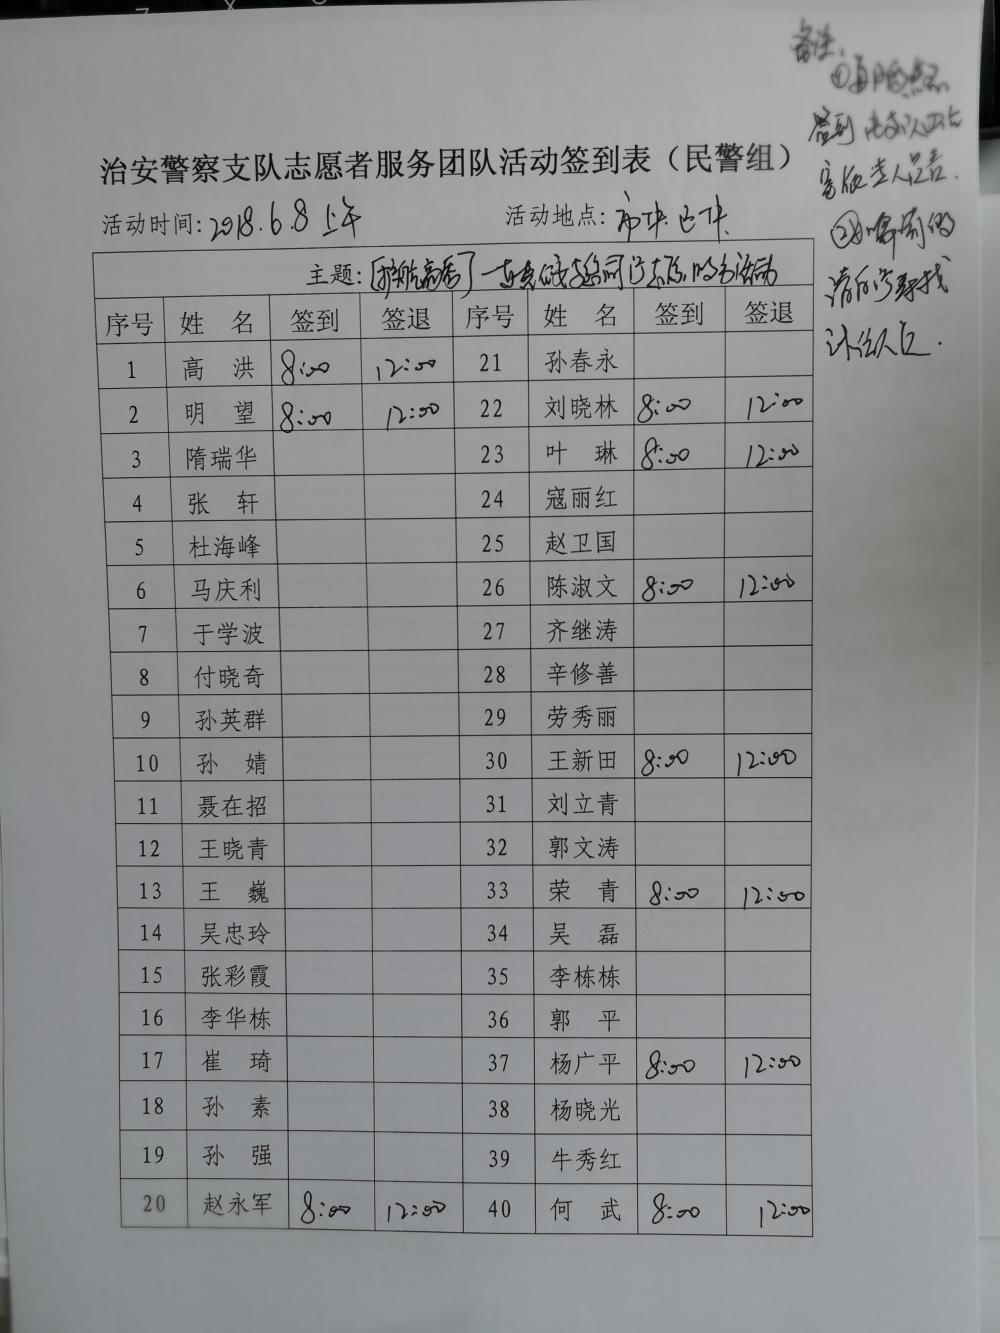 备注:
治安警察支队志愿者服务团队活动签到表（民警组）
活动时间:2018.6.8上午 活动地点:市块 区块
主题:[护航高考]
序号 姓名 签到 签退 序号 姓名 签到 签退
1 高洪 8:00 12:00 21 孙春永
2 明望 8:00 12:00 22 刘晓林 8:00 12:00
3 隋瑞华 23 叶琳 8:00 12:00
4 张轩 24 寇丽红
5 杜海峰 25 赵卫国
6 马庆利 26 陈淑文 8:00 12:00
7 于学波 27 齐继涛
8 付晓奇 28 辛修善
9 孙英群 29 劳秀丽
10 孙婧 30 王新田 8:00 12:00
11 聂在招 31 刘立青
12 王晓青 32 郭文涛
13 王巍 33 荣青 8:00 12:00
14 吴忠玲 34 吴磊
15 张彩霞 35 李栋栋
16 李华栋 36 郭平
17 崔琦 37 杨广平 8:00 12:00
18 孙素 38 杨晓光
19 孙强 39 牛秀红
20 赵永军 8:00 12:00 40 何武 8:00 12:00